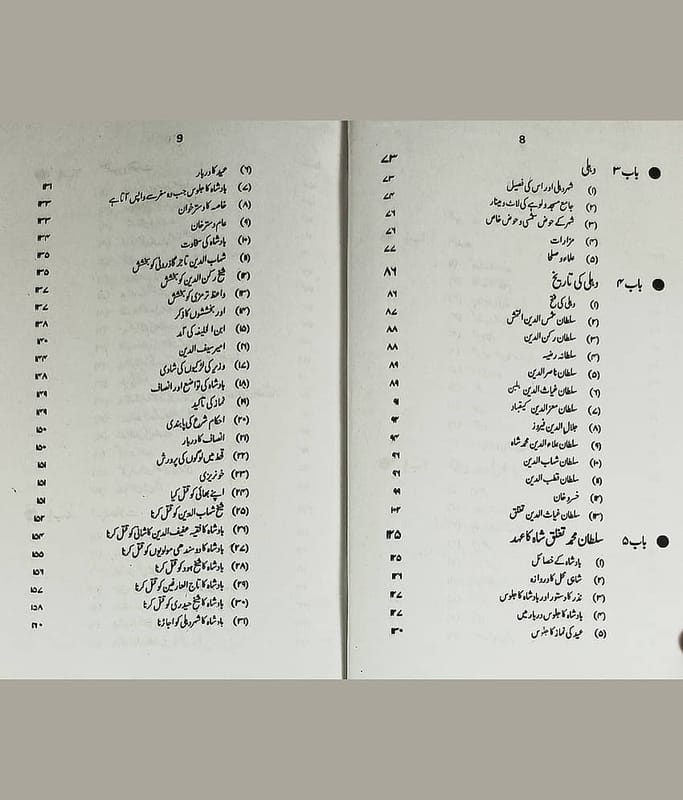 8
باب ۳ دہلی ۷۳
(۱) شہر دہلی اور اس کی فصیل ۷۳
(۲) جامع مسجد، لوہے کی لاٹ و مینار ۷۴
(۳) شہر کے حوض شمسی و حوض خاص ۷۶
(۴) مزارات ۷۶
(۵) علماء و صلحا ۷۷
باب ۴ دہلی کی تاریخ ۸۶
(۱) دہلی کی فتح ۸۶
(۲) سلطان شمس الدین التمش ۸۷
(۳) سلطان رکن الدین ۸۸
(۴) سلطانہ رضیہ ۸۸
(۵) سلطان ناصر الدین ۸۹
(۶) سلطان غیاث الدین بلبن ۸۹
(۷) سلطان معز الدین کیقباد ۹۱
(۸) جلال الدین فیروز ۹۳
(۹) سلطان علاء الدین محمد شاہ ۹۴
(۱۰) سلطان شہاب الدین ۹۶
(۱۱) سلطان قطب الدین ۹۶
(۱۲) خسرو خان ۹۹
(۱۳) سلطان غیاث الدین تغلق ۱۰۲
باب ۵ سلطان محمد تغلق شاہ کا عہد ۱۲۵
(۱) بادشاہ کے خصائل ۱۲۵
(۲) شاہی محل کا دروازہ ۱۲۶
(۳) نذر کا دستور اور بادشاہ کا جلوس ۱۲۷
(۴) بادشاہ کا جلوس دربار میں ۱۲۷
(۵) عید کی نماز کا جلوس ۱۳۰
9
(۶) عید کا دربار ۱۳۱
(۷) بادشاہ کا جلوس جب وہ سفر سے واپس آتا ہے ۱۳۳
(۸) خاصہ کا دستر خوان ۱۳۳
(۹) عام دستر خان ۱۳۴
(۱۰) بادشاہ کی سخاوت ۱۳۵
(۱۱) شہاب الدین تاجر گاذرونی کو بخشش ۱۳۵
(۱۲) شیخ رکن الدین کو بخشش ۱۳۷
(۱۳) واعظ ترمذی کو بخشش ۱۳۷
(۱۴) اور بخششوں کا ذکر ۱۳۸
(۱۵) ابن الخلیفہ کی آمد
(۱۶) امیر سیف الدین ۱۴۴
(۱۷) وزیر کی لڑکیوں کی شادی ۱۴۸
(۱۸) بادشاہ کی تواضع اور انصاف ۱۴۹
(۱۹) نماز کی تاکید ۱۴۹
(۲۰) احکام شرع کی پابندی ۱۵۰
(۲۱) انصاف کا دربار ۱۵۰
(۲۲) قحط میں لوگوں کی پرورش ۱۵۱
(۲۳) خونریزی ۱۵۱
(۲۴) اپنے بھائی کو قتل کیا ۱۵۱
(۲۵) شیخ شہاب الدین کو قتل کرنا ۱۵۲
(۲۶) بادشاہ کا فقیہ عفیف الدین کاشانی کو قتل کرنا ۱۵۴
(۲۷) بادشاہ کا دو سندھی مولویوں کو قتل کرنا ۱۵۵
(۲۸) بادشاہ کا شیخ ہود کو قتل کرنا ۱۵۶
(۲۹) بادشاہ کا تاج العارفین کو قتل کرنا ۱۵۷
(۳۰) بادشاہ کا شیخ حیدری کو قتل کرنا ۱۵۸
(۳۱) بادشاہ کا شہر دہلی کو اجاڑنا ۱۶۰